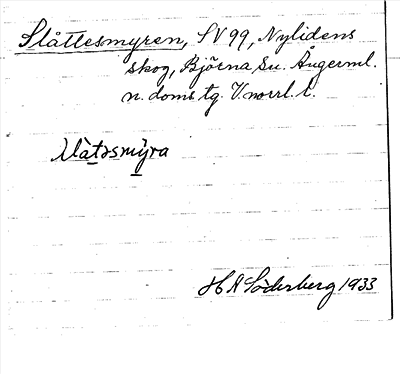 Slåttesmyren, SV 99, Nylidens
skog, Björna sn. Ångerml.
n. doms. tg. V.norrl. l.
H A Söderberg 1933